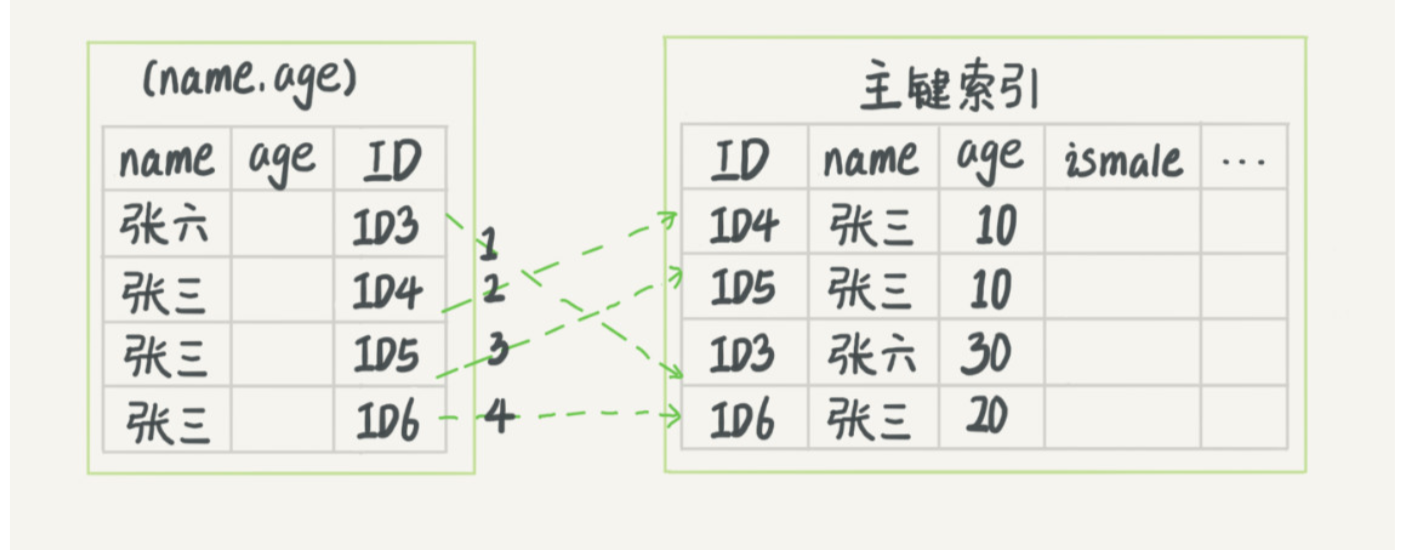 (name, age)
name age ID
张六 ID3
张三 ID4
张三 ID5
张三 ID6
1
2
3
4
主键索引
ID name age ismale ...
ID4 张三 10
ID5 张三 10
ID3 张六 30
ID6 张三 20